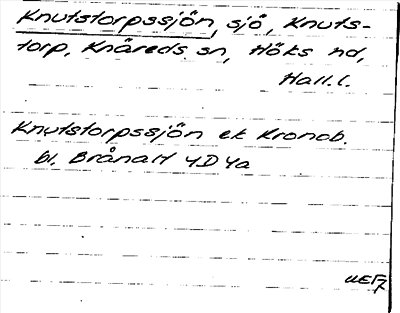 Knutstorpssjön, sjö, Knuts-
torp, Knäreds sn, Höks hd,
Hall.l.
Knutstorpssjön ek Kronob.
bl. Brånalt 4D 4a